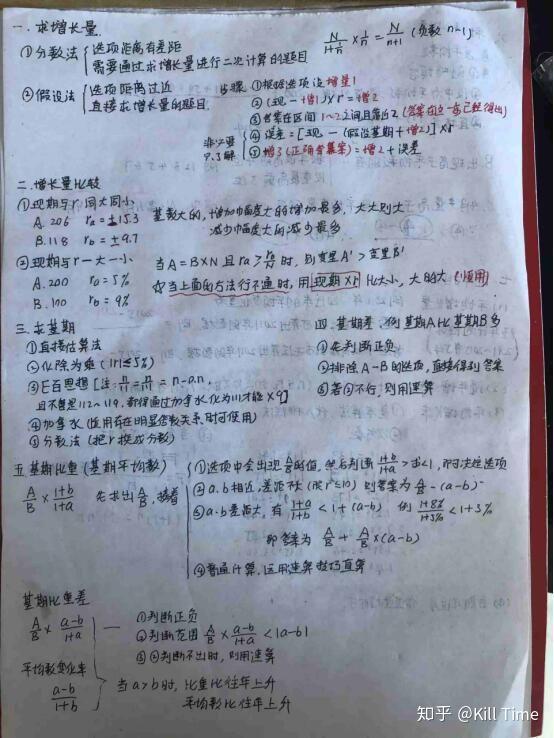 一.求增长量
①分数法 { 选项距离有差距
需要通过求增长量进行二次计算的题目
N/(1+n) × 1/n = N/(n+1) (负数 n-1)
②假设法 { 选项距离过近
直接求增长量的题目
步骤
①根据选项设增量1
②(现-增1)×r=增2
③答案在区间1~2之间且靠近2(答案在这一步已能得出)
④误差=[现-(假设基期+增2)]×r
⑤增3(正确答案)=增2+误差
二.增长量比较
①现期与r同大同小
A. 206 ra=±15.3
B. 118 rb=±9.7
基数大的,增加幅度大的增加最多,大大则大
减少幅度大的减少最多
②现期与r一大一小
A. 200 ra=5%
B. 100 rb=9%
当A=B×N且ra>rb/N时,则变量A'>变量B'
☆当上面的方法行不通时,用现期×r比大小,大的大(慎用)
三.求基期
①直接估算法
②化除为乘(|r|≤5%)
③
且不管是112~119,都得通过加拿水化为111才能×9
④加拿水(适用存在明显倍数关系时可使用)
⑤分数法(把r换成分数)
四.基期差,例基期A比基期B多
①先判断正负
②排除A-B的选项,直接得到答案
③若②不行,则用速算
五.基期比重(基期平均数)
A/B × (1+b)/(1+a) 先求出A/B,接着
①选项中会出现A/B的值,然后判断(1+b)/(1+a)>或<1,即可决定选项
②a.b相近,差距不大(成r≤10)则答案为A/B-(a-b)
③a.b差距大,有(1+a)/(1+b)<1+(a-b) 例(1+8%)/(1+5%)<1+3%
即答案为 A/B+A/B×(a-b)
④普通计算,运用速算技巧直算
基期比重差
A/B × (a-b)/(1+a)
①判断正负
②判断范围 A/B × (a-b)/(1+a) <|a-b|
③②判断不出时,则用速算
平均数变化率
(a-b)/(1+b)
当a>b时,比重比往年上升
平均数比往年上升
知乎 @Kill Time